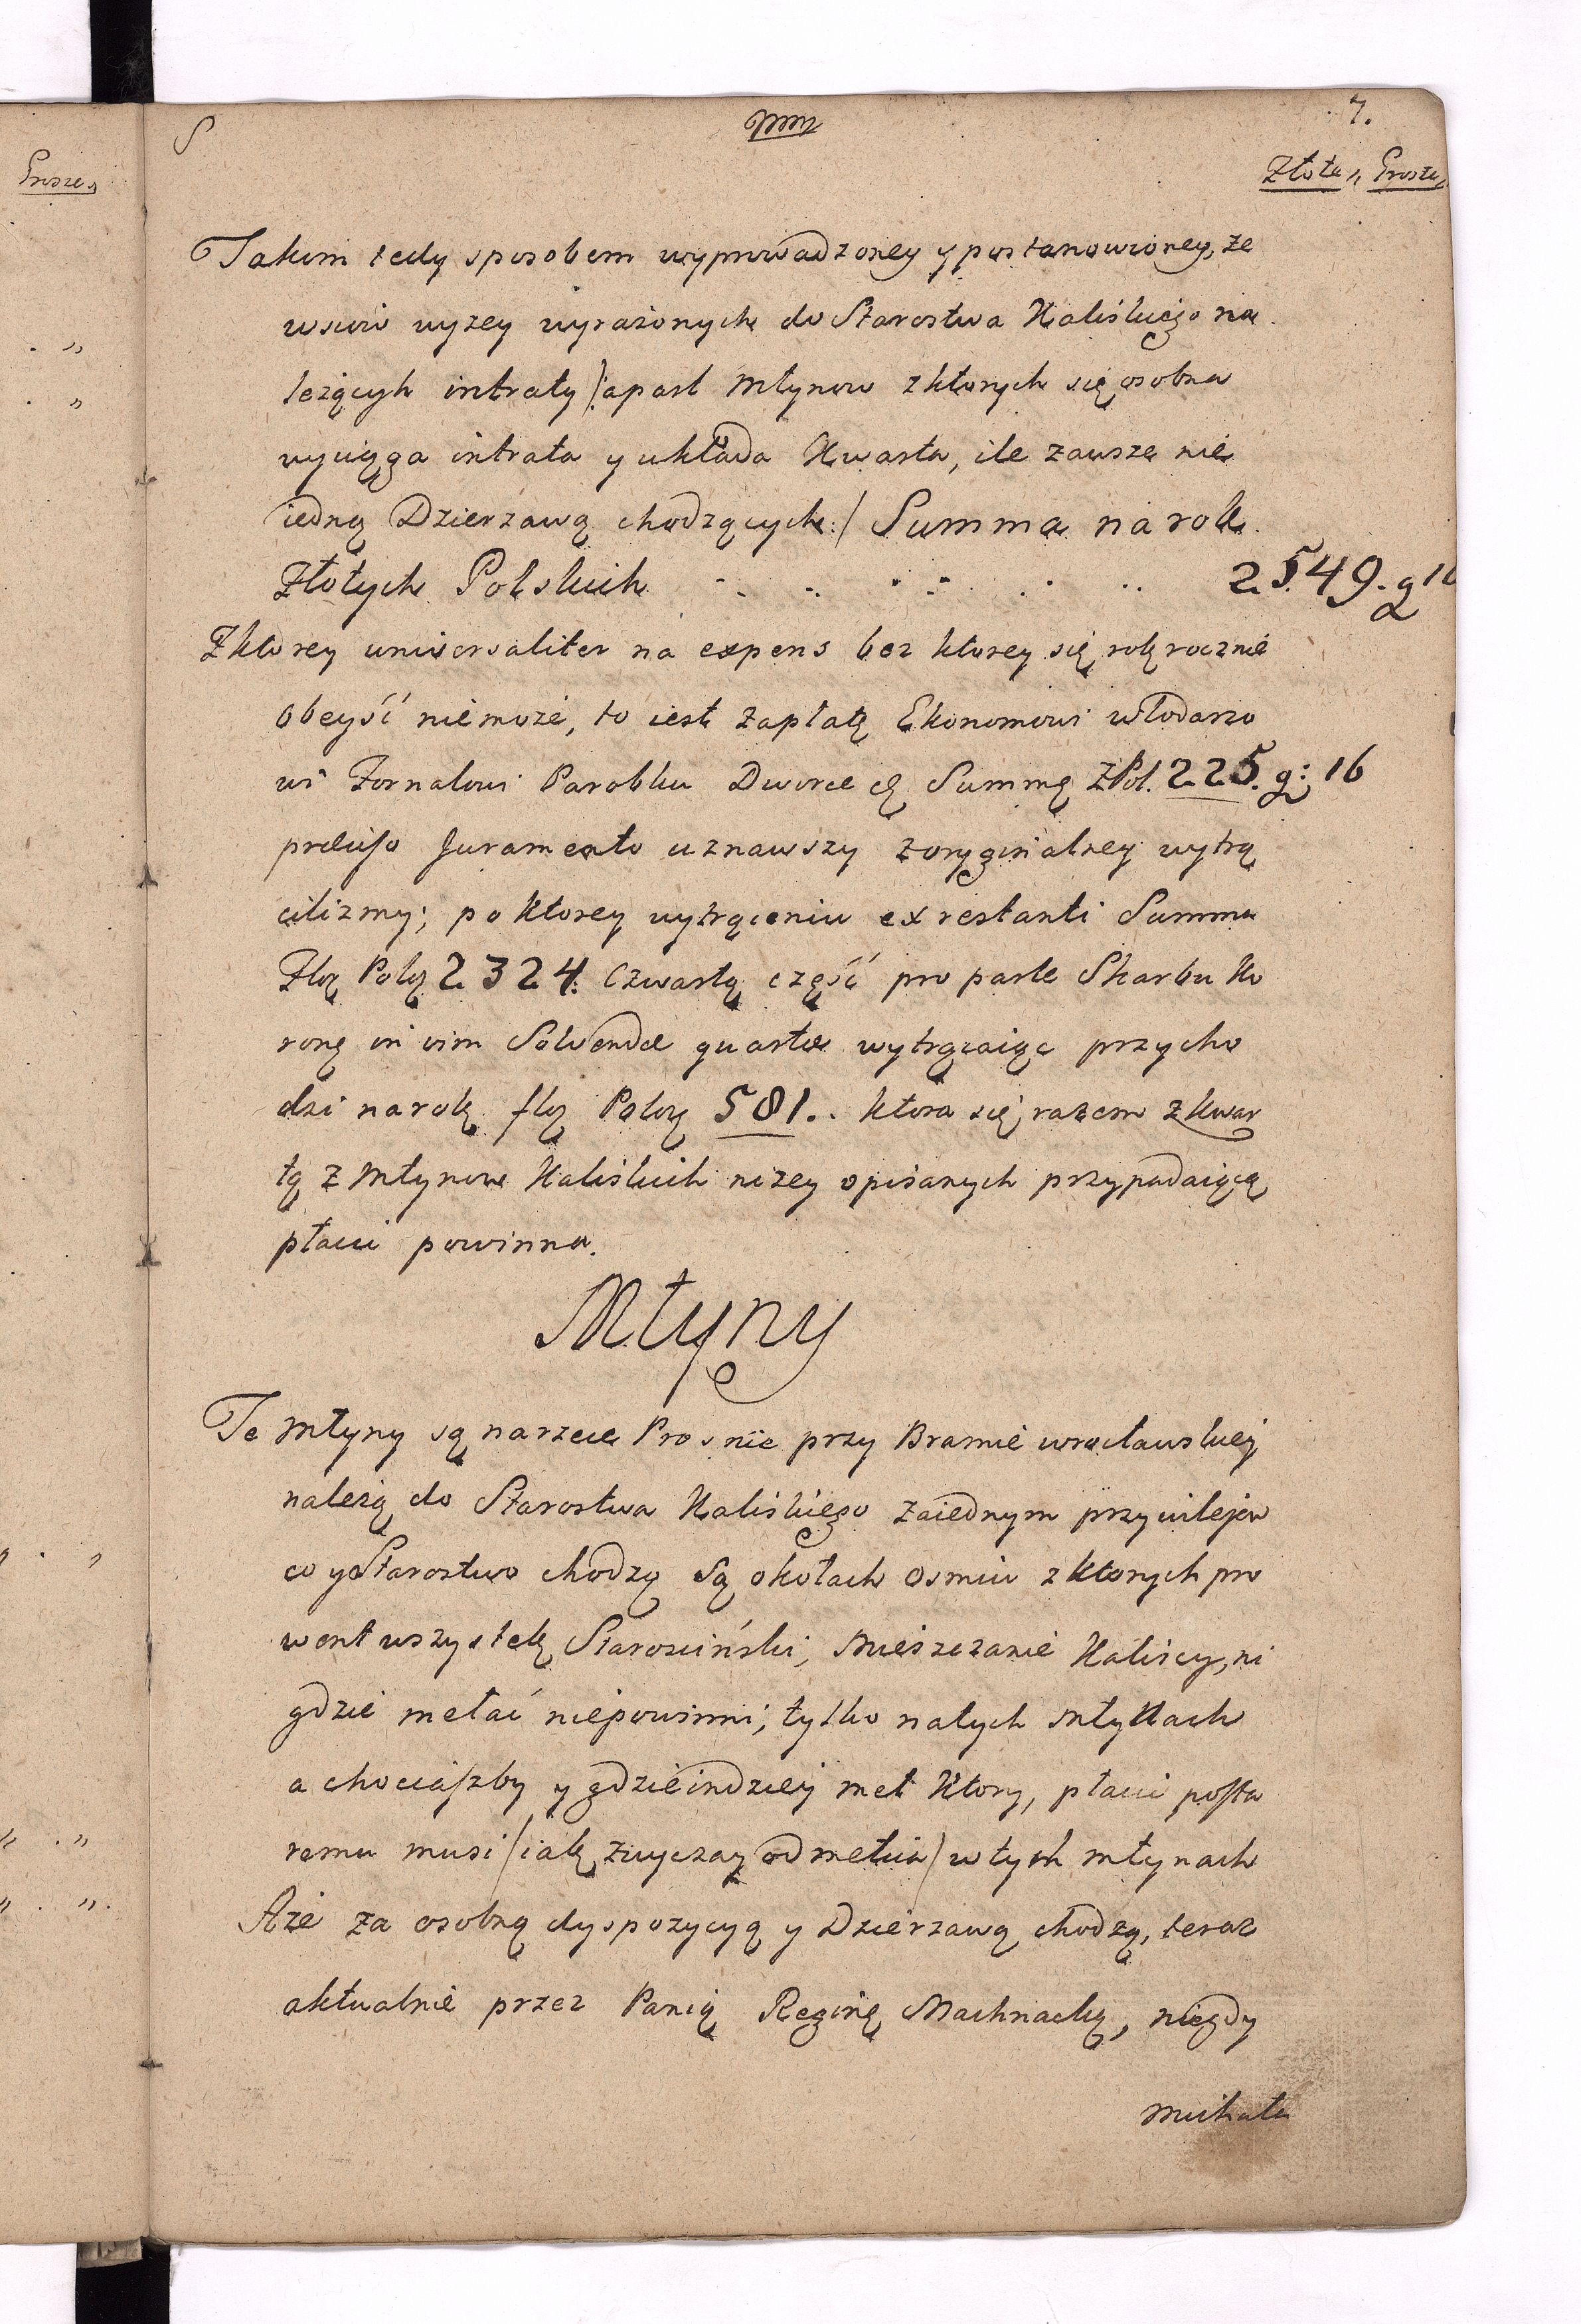 Prosze„
S
7.
Złote „ Grosze„
Takim tedy sposobem wyprowadzoney y postanowioney, ze
wsiow wyzey wyrażonych do Starostwa Kaliskiego na
leżących intraty /: apart Młynow z ktorych się osobna
wyciąga intrata y układa Kwarta, ile zawsze nie
iedną Dzierzawą chodzących :/ Summa na rok
Złotych Polskich 2549. g 16
Z ktorey universaliter na expens bez ktorey się rok rocznie
obeyść niemoże, to iest zapłatę Ekonomowi włodarzo
wi Fornalowi Parobku Dworce cę Summę ZPol. 225. g: 16
preuiso Juramento uznawszy z oryginalney wytrą
cilizmy; po ktorey wytrąceniu ex restanti Summa
Zlo Polo 2324. Czwartą część pro parte Skarbu Ko
ronę in vim Solvendæ quartæ wytrącaiąc przycho
dzi na rok flo Polo 581.. ktora się razem z kwar
tą z Młynow Kaliskich nizey opisanych przypadaiącą
płacić powinna.
Młyny
Te Młyny są na rzece Prosnie przy Bramie wrocławskiey
należą do Starostwa Kaliskiego za iednym przywilejem
co y Starostwo chodzą są o kołach osmiu z ktorych pro
went wszystek Starosciński, Mieszczanie Kaliscy, ni
gdzie mełać niepowinni, tylko na tych Młynach
a chociaszby y gdzieindziey meł Ktory, płacić posta
remu musi / iak zwyczay od mełcia / w tych młynach
Aże za osobną dyspozycyą y Dzierzawą chodzą, teraz
aktualnie przez Panią Reginę Machnacką, niegdy
Michała